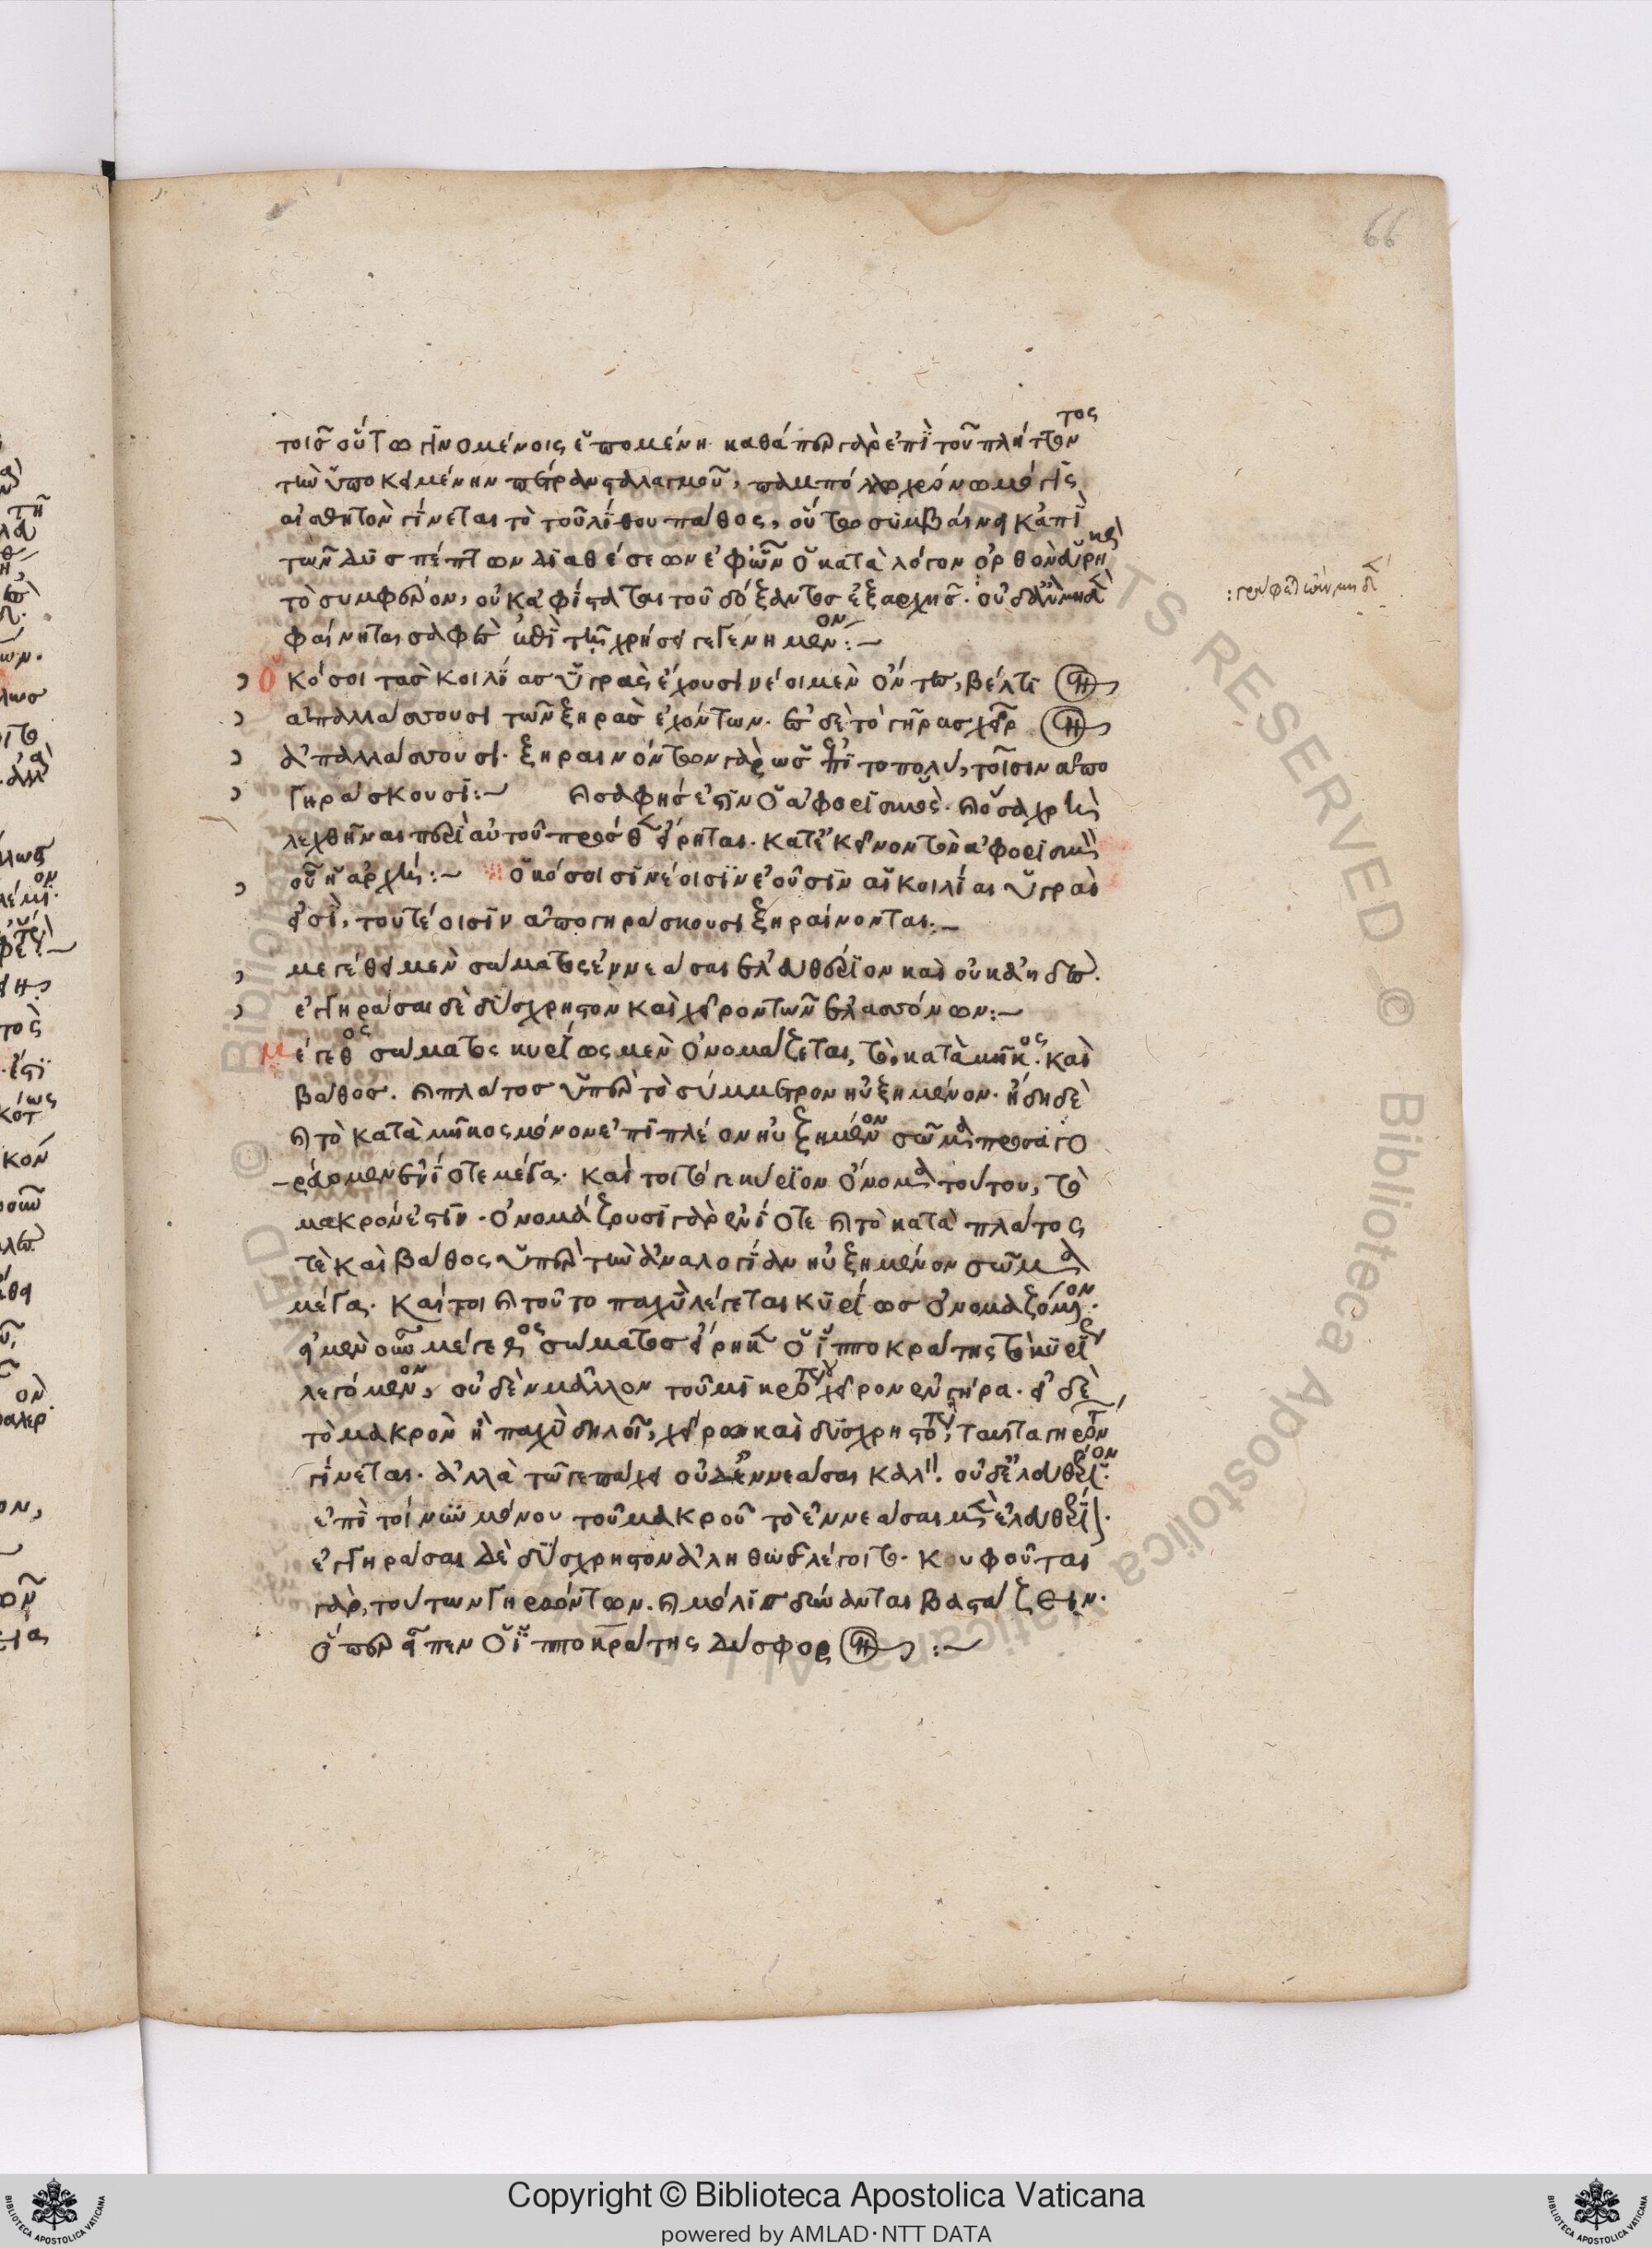 66
τοῖς οὕτω γινομένοις ἑπομένη. καθάπερ γὰρ ἐπὶ τοῦ πλήττοντος
τὴν ὑποκειμένην πέτραν σταλαγμοῦ, παμπόλλω χρόνω μόγις
αἰσθητὸν γίνεται τὸ τοῦ λίθου πάθος, οὕτω συμβαίνει κἀπὶ
τῶν δυσπέπτων διαθέσεων ἐφ' ὧν ὁ κατὰ λόγον ὀρθὸν εὕρηκε
τὸ συμφέρον, οὐκ ἀφίσταται τοῦ δόξαντος ἐξ ἀρχῆς.
φαίνηται σαφῶς τῆ χρήσει γεγενημένον:~
: γρ
Ὁκόσοι τὰς κοιλίας ὑγρὰς ἔχουσι νέοι μὲν ὄντες, βέλτιον
ἀπαλλάσσουσι τῶν ξηρὰς ἐχόντων. ἐς δὲ τὸ γῆρας χεῖρον
ἀπαλλάσσουσι. ξηραίνονται γὰρ ὡς ἐπὶ τοπολὺ, τοῖσιν ἀπο
γηράσκουσι:~ καὶ σαφής ἐστιν ὁ ἀφορισμὸς. καὶ ὅσα χρὴ
λεχθῆναι περὶ αὐτοῦ πρόσθεν εἴρηται. κατ' ἐκεῖνον τὸν ἀφορισμὸν
οὗ ἡ ἀρχή:~ ὁκόσοισι νέοισιν ἐοῦσιν αἱ κοιλίαι ὑγραὶ
εἰσὶ, τουτέοισιν ἀπογηράσκουσι ξηραίνονται:~
μεγέθει μὲν σώματος ἐννεάσαι ἐλευθέριον καὶ οὐκ ἀηδές.
ἐγγηράσαι δὲ δύσχρηστον καὶ χεῖρον τῶν ἐλασσόνων:~
Μέγεθος σώματος κυρίως μὲν ὀνομάζεται, τὸ κατὰ μῆκος καὶ
βάθος. καὶ πλάτος ὑπὲρ τὸ σύμμετρον ηὐξημένον. ἤδη δὲ
καὶ τὸ κατὰ μῆκος μόνον ἐπιπλέον ηὐξημένον σῶμα προσαγο
ρεύομεν ἐνίοτε μέγα. καί τοι τό γε κύριον ὄνομα τούτου, τὸ
μακρόν ἐστιν. ὀνομάζουσι γὰρ ἐνίοτε καὶ τὸ κατὰ πλάτος
τὲ καὶ βάθος ὑπὲρ τὴν ἀναλογίαν ηὐξημένον σῶμα
μέγα. καίτοι καὶ τοῦτο παχὺ λέγεται κυρίως ὀνομαζόμενον.
εἰ μὲν οὖν μέγεθος σώματος εἴρηκεν ὁ ἱπποκράτης τὸ κυρίως
λεγόμενον, οὐδὲν μᾶλλον τοῦ μικροτέρου χεῖρον ἐν γήρα. εἰ δὲ
τὸ μακρὸν ἢ παχὺ δηλοῖ, χεῖρον καὶ δυσχρηστότερον, ταῦτα γηρόντων
γίνεται. ἀλλὰ τῶ γε παχεῖ οὐδ' ἐννεάσαι καλὸν. οὐδ' ἐλευθέριον.
ἐπὶ τοίνυν μόνου τοῦ μακροῦ τὸ ἐννεάσαι μὲν ἐλευθέριον.
ἐγγηράσαι δὲ δύσχρηστον ἀληθῶς λέγοιτο. κυφοῦται
γὰρ, τούτων γηρόντων. καὶ μόλις δύνανται βαστάζειν.
ὅπερ εἶπεν ὁ ἱπποκράτης δύσφορον:~
Copyright © Biblioteca Apostolica Vaticana
powered by AMLAD·NTT DATA